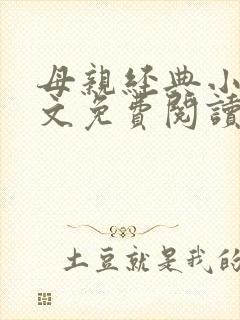 母親經典小
文免費閱讀
土豆就是我的